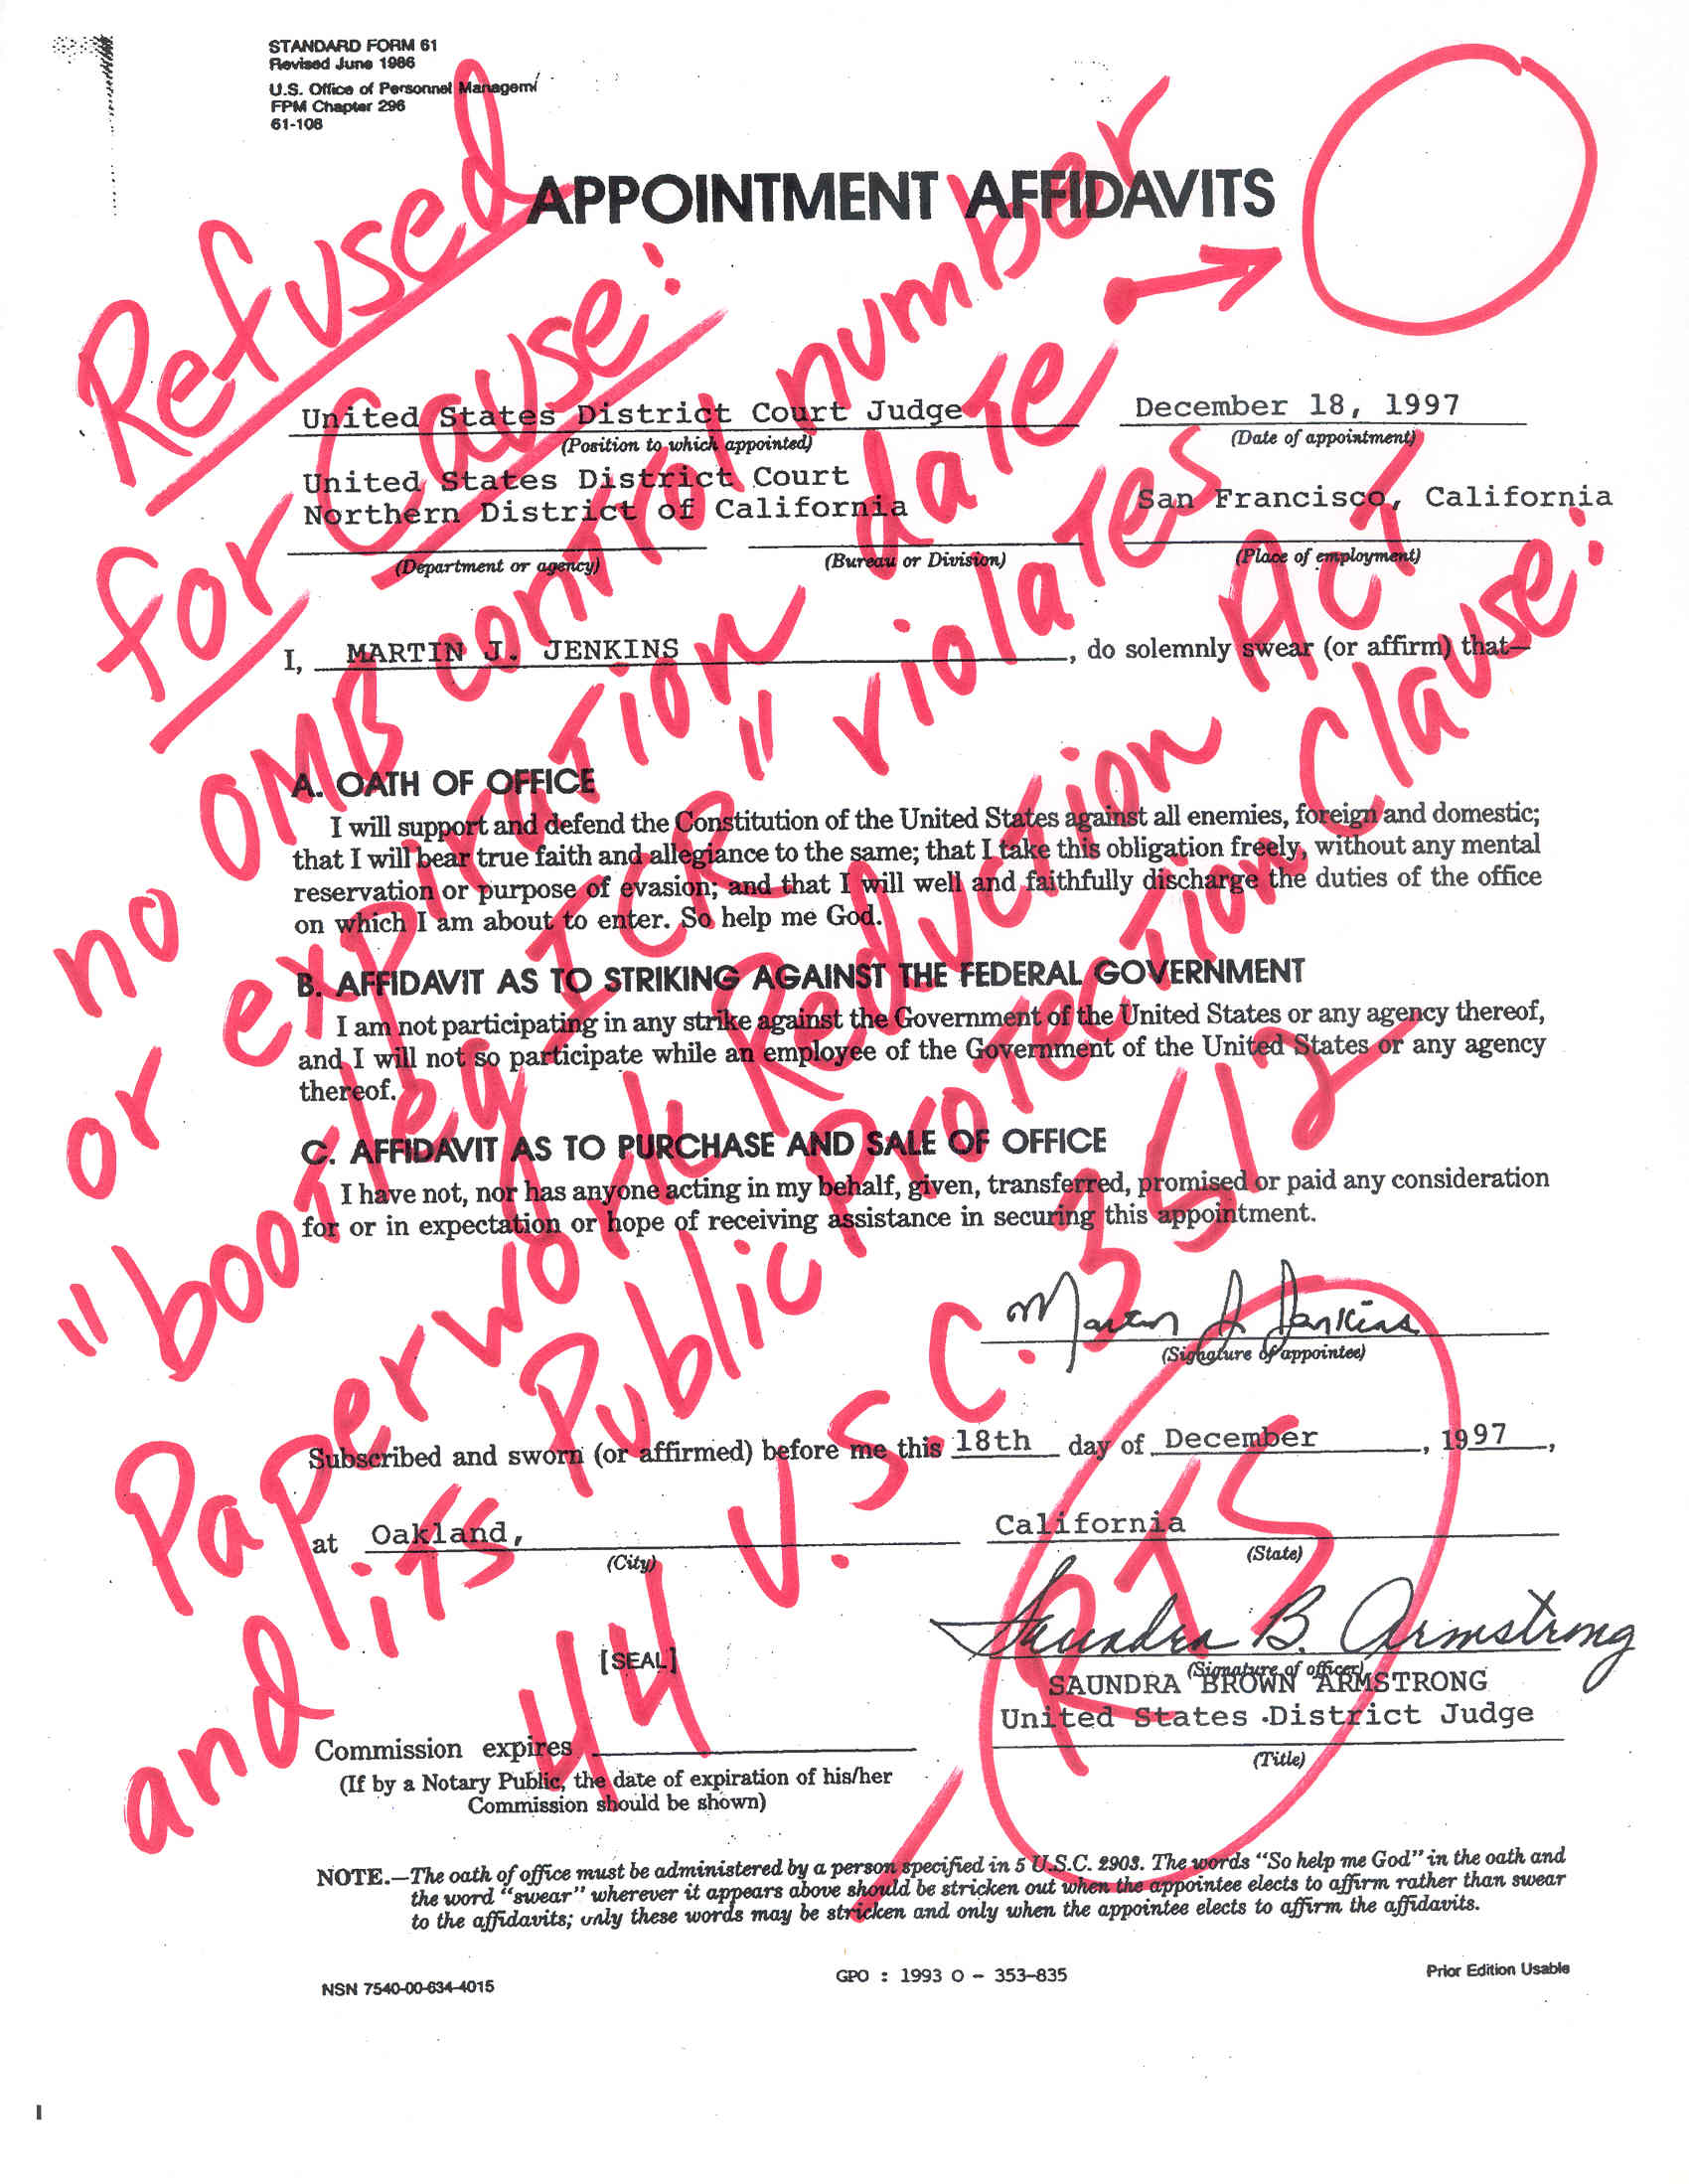 STANDARD FORM 61
Revised June 1986
U.S. Office of Personnel Managem
FPM Chapter 296
61-108
APPOINTMENT AFFIDAVITS
United States District Court Judge
(Position to which appointed)
December 18, 1997
(Date of appointment)
United States District Court
Northern District of California
San Francisco, California
(Department or agency)
(Bureau or Division)
(Place of employment)
I, MARTIN J. JENKINS, do solemnly swear (or affirm) that—
A. OATH OF OFFICE
I will support and defend the Constitution of the United States against all enemies, foreign and domestic;
that I will bear true faith and allegiance to the same; that I take this obligation freely, without any mental
reservation or purpose of evasion; and that I will well and faithfully discharge the duties of the office
on which I am about to enter. So help me God.
B. AFFIDAVIT AS TO STRIKING AGAINST THE FEDERAL GOVERNMENT
I am not participating in any strike against the Government of the United States or any agency thereof,
and I will not so participate while an employee of the Government of the United States or any agency
thereof.
C. AFFIDAVIT AS TO PURCHASE AND SALE OF OFFICE
I have not, nor has anyone acting in my behalf, given, transferred, promised or paid any consideration
for or in expectation or hope of receiving assistance in securing this appointment.
Martin J Jenkins
(Signature of appointee)
Subscribed and sworn (or affirmed) before me this 18th day of December, 1997,
at Oakland, California
(City)
(State)
Saundra B. Armstrong
[SEAL]
(Signature of officer)
SAUNDRA BROWN ARMSTRONG
United States District Judge
(Title)
Commission expires
(If by a Notary Public, the date of expiration of his/her
Commission should be shown)
NOTE.—The oath of office must be administered by a person specified in 5 U.S.C. 2903. The words “So help me God” in the oath and
the word “swear” wherever it appears above should be stricken out when the appointee elects to affirm rather than swear
to the affidavits; only these words may be stricken and only when the appointee elects to affirm the affidavits.
NSN 7540-00-634-4015
GPO : 1993 O - 353-835
Prior Edition Usable
Refused
for Cause:
no OMB control number
or expiration date
"bootleg ICR" violates
Paperwork Reduction Act
and its Public Protection Clause:
44 U.S.C. 3512
RTS